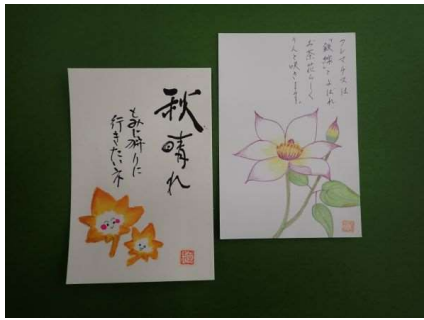 秋晴れ
もみじ狩りに
行きたいネ
クレマチスは
「鉄線」とよばれ
お茶花らしく
りんと咲きます。